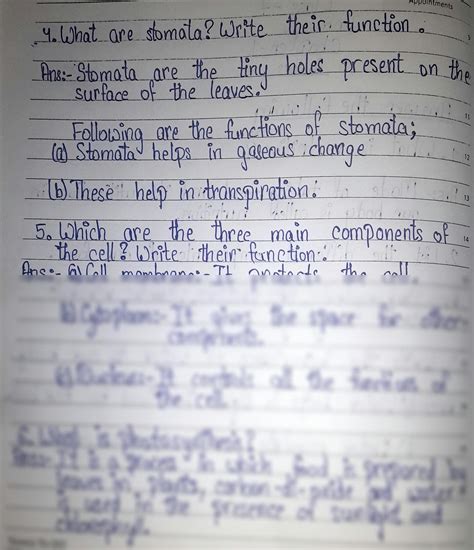 Appointments
4. What are stomata? Write their function.
Ans:- Stomata are the tiny holes present on the
surface of the leaves.
Following are the functions of stomata;
(a) Stomata helps in gaseous change
(b) These help in transpiration.
5. Which are the three main components of
the cell? Write their function.
Ans:- a) Cell membrane:- It protects the cell.
b) Cytoplasm:- It gives the space for other
components.
c) Nucleus:- It controls all the function of
the cell.
6. What is photosynthesis?
Ans:- It is a process in which food is prepared by
leaves in plants, carbon-di-oxide and water
is used in the presence of sunlight and
chlorophyll.